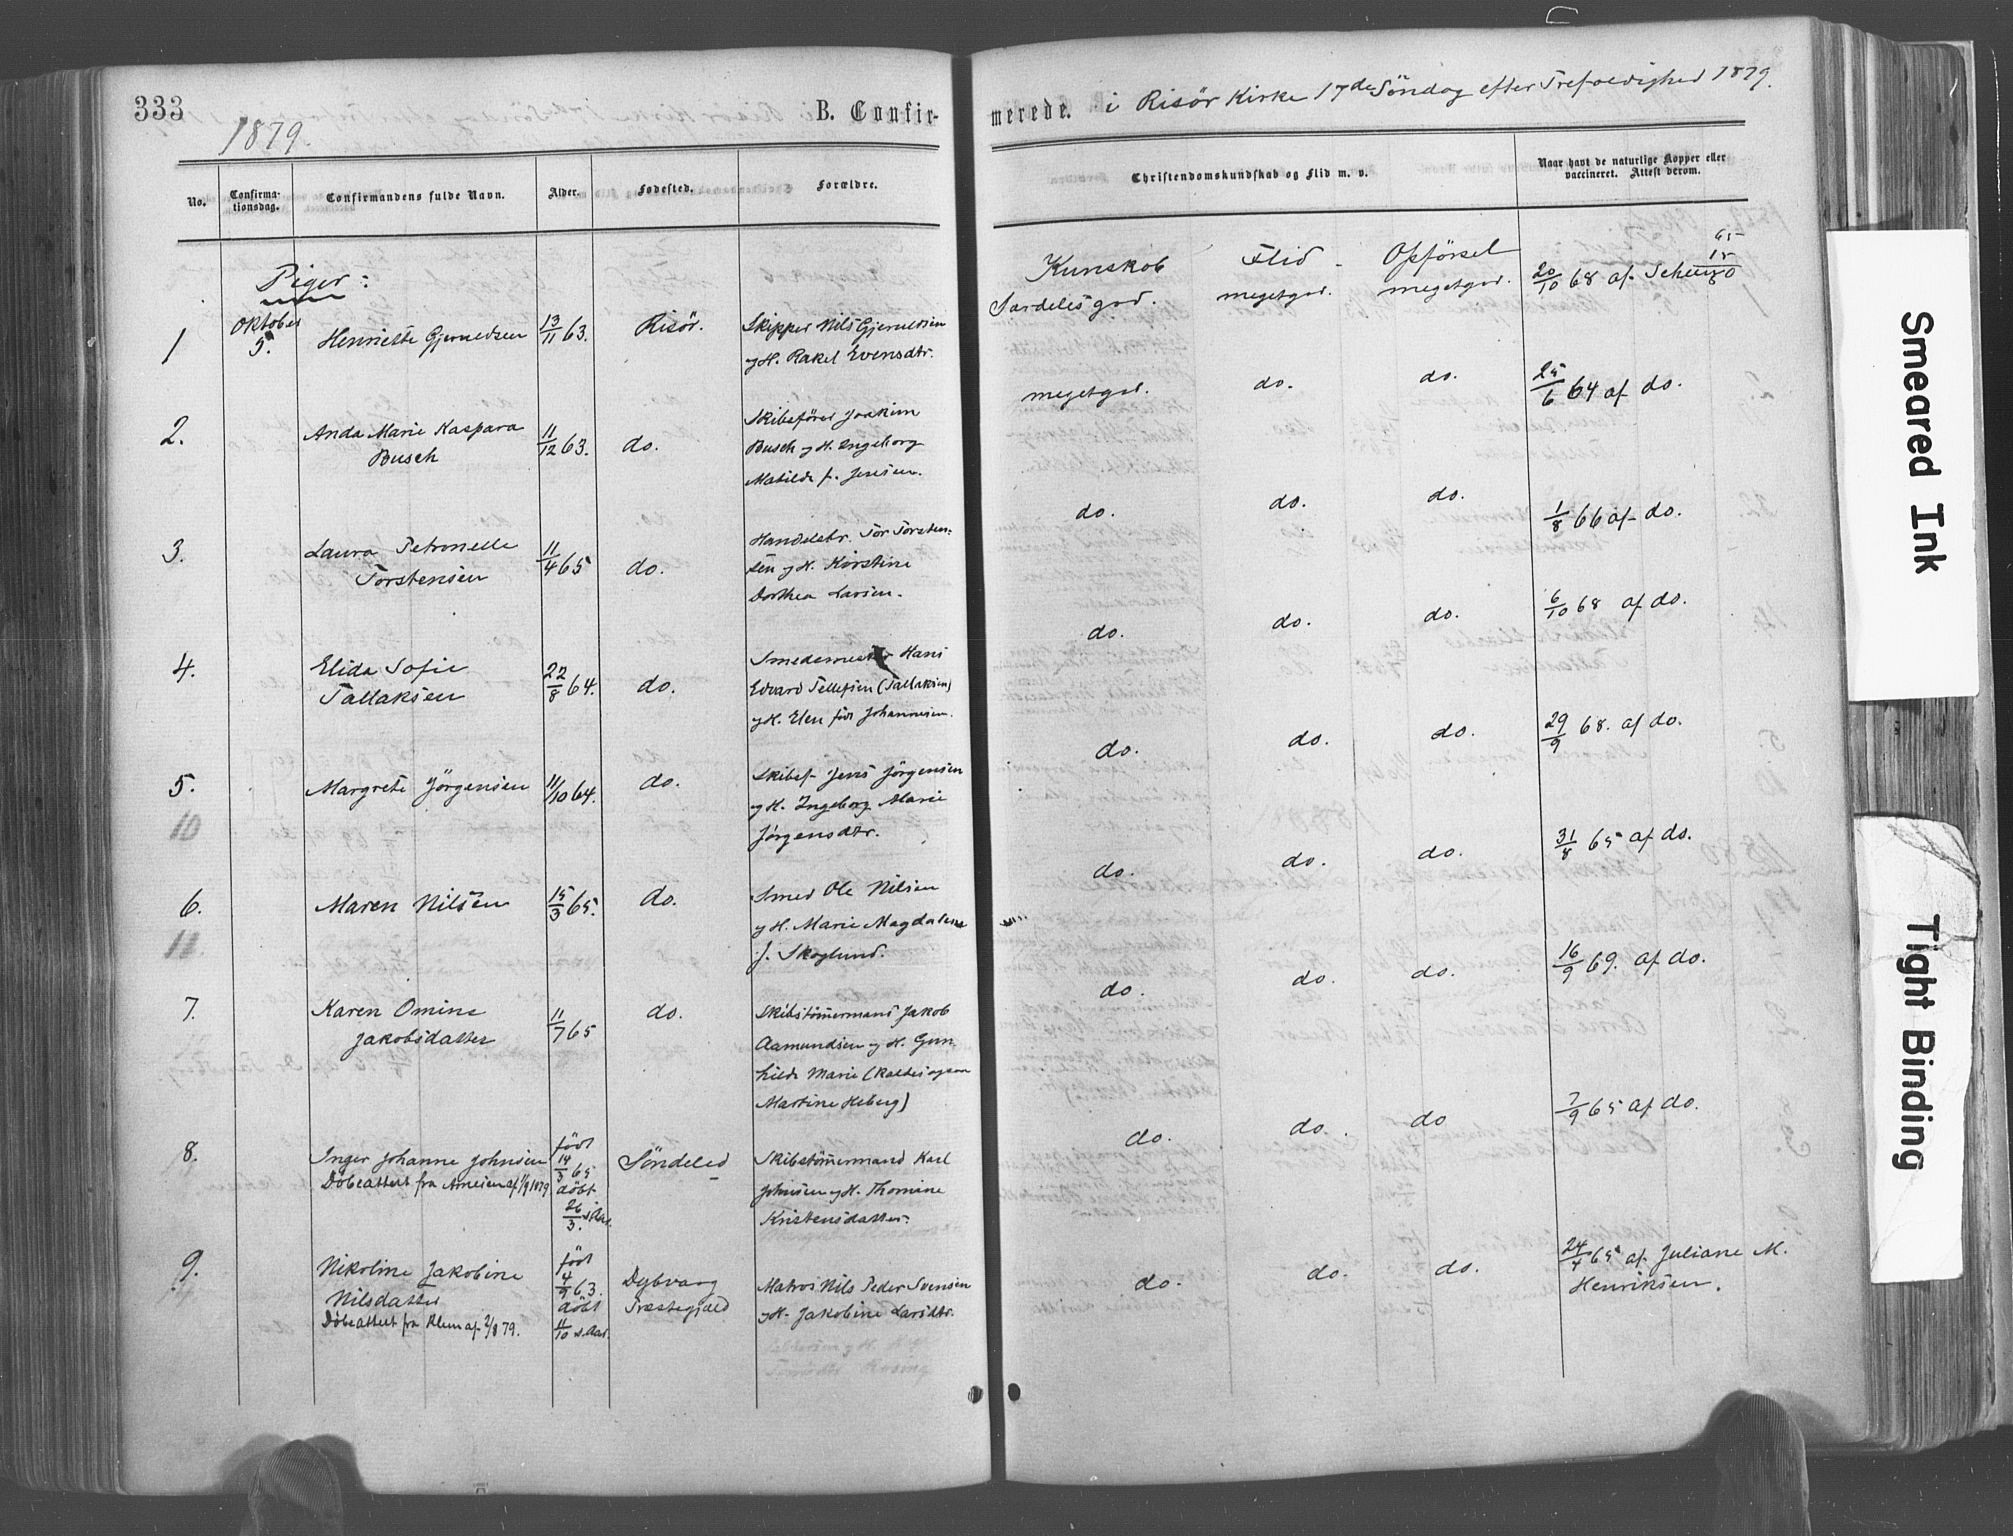 333
1879.
B. Confir-
merede. i Risör Kirke 17de Söndag efter Trefoldighed 1879.
No.
Confirma-
tionsdag.
Confirmandens fulde Navn.
Alder.
Fødested.
Forældre.
Christendomskundskab og Flid m. v.
Naar havt de naturlige Kopper eller
vaccineret. Attest derom.
Piger:
Kunskab Flid Opförsel
1 Oktober 5. Henriette Gjeruldsen 13/11 63. Risör. Skipper Nils Gjeruldsen
og H. Rakel Evensdtr.
Særdelesgod. megetgod. megetgod. 20/10 68 af
2. Anda Marie Kaspara
Busch
11/12 63. do. Skibsförer Joakim
Busch og H. Ingeborg
Matilde f. Jensen.
megetgod. do. do. 25/6 64 af do.
3. Laura Petronelle
Torstensen
11/4 65 do. Handelsbr. Tor Torsten-
sen og H. Kirstine
Dorthea Larsen.
do. do. do. 1/8 66 af do.
4. Elida Sofie
Tallaksen
22/8 64. do. Smedemester Hans
Edvard Tellefsen (Tallaksen)
og H. Elen föd Johannesen.
do. do. do. 6/10 68 af do.
5. Margrete Jörgensen 11/10 64. do. Skibsf. Jens Jörgensen
og H. Ingeborg Marie
Jörgensdtr.
do. do. do. 29/9 68. af do.
10
6. Maren Nilsen 15/3 65. do. Smed Ole Nilsen
og H. Marie Magdalene
f. Skoglund.
do. do. do. 31/8 65 af do.
11.
7. Karen Omine
Jakobsdatter
11/7 65 do. Skibstömermand Jakob
Aamundsen og H. Gun
hilde Marie (kaldes ogsaa
Martine Heberg)
do. do. do. 16/9 69. af do.
8. Inger Johanne Johnsen
Döbeattest fra Arnesen af 1/9 1879
född 14/3 65
döbt
26/3 s. Aar.
Söndeled Skibstömermand Karl
Johnsen og H. Thomine
Kristensdatter.
do. do. do 7/9 65 af do.
9. Nikoline Jakobine
Nilsdatter
Döbeattest fra Klem af 2/8 79.
född
4/9 63.
döbt
11/10 s. Aar.
Dybvaag
Præstegjæld
Matros Nils Peder Svensen
og H. Jakobine Larsdtr.
do. do. do. 24/4 65 af Juliane M.
Henriksen.
Smeared Ink
Tight Binding